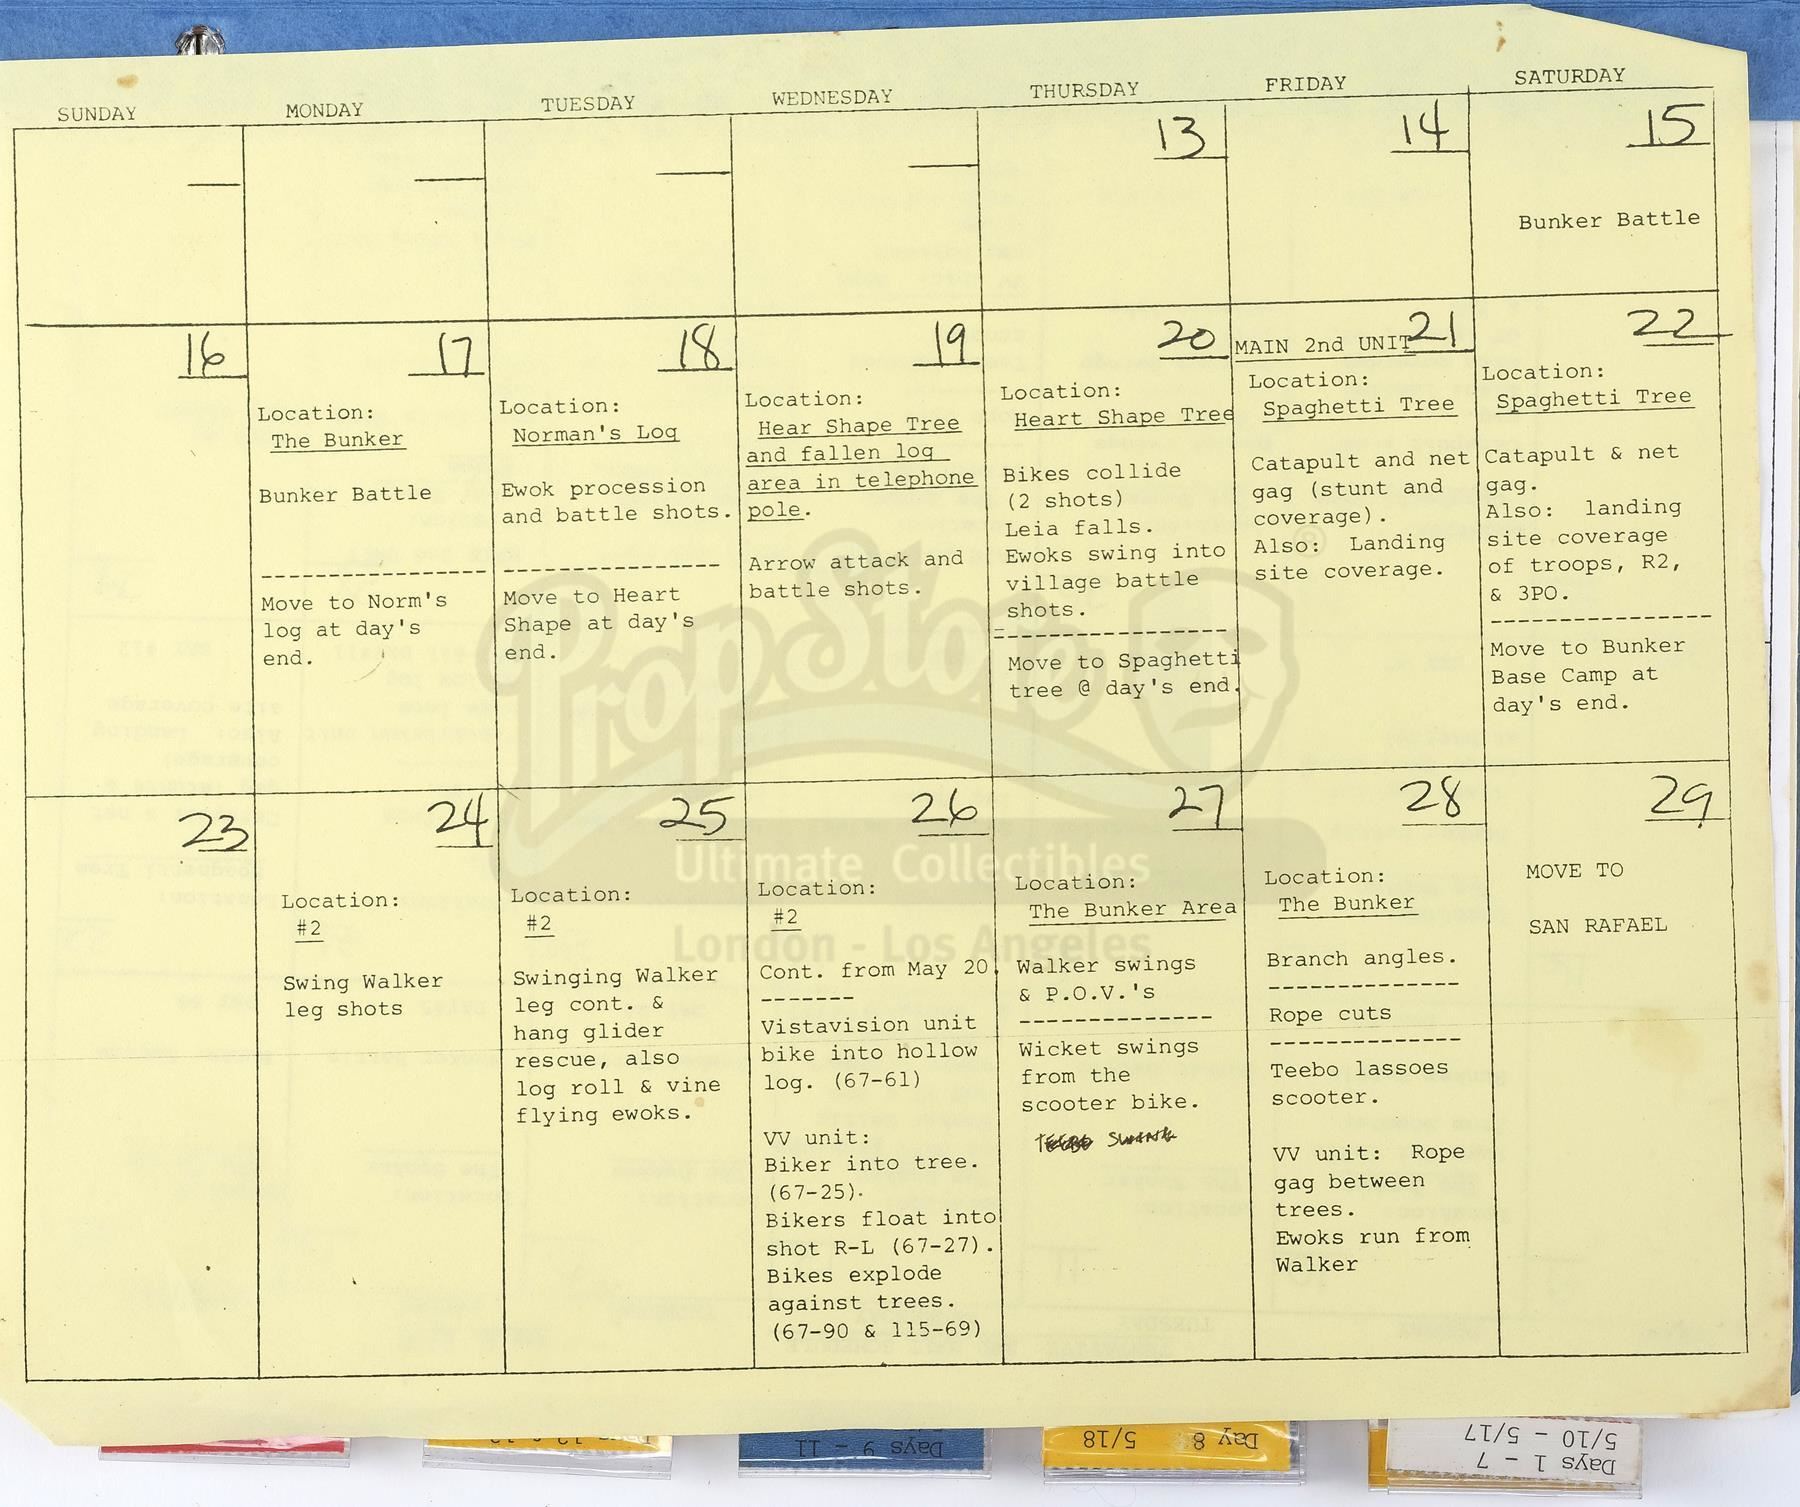 SUNDAY MONDAY TUESDAY WEDNESDAY THURSDAY FRIDAY SATURDAY
13
14
15
Bunker Battle
16
17
Location:
The Bunker
Bunker Battle
Move to Norm's
log at day's
end.
18
Location:
Norman's Log
Ewok procession
and battle shots.
Move to Heart
Shape at day's
end.
19
Location:
Hear Shape Tree
and fallen log
area in telephone
pole.
Arrow attack and
battle shots.
20
Location:
Heart Shape Tree
Bikes collide
(2 shots)
Leia falls.
Ewoks swing into
village battle
shots.
Move to Spaghetti
tree @ day's end.
21
MAIN 2nd UNIT
Location:
Spaghetti Tree
Catapult and net
gag (stunt and
coverage).
Also: Landing
site coverage.
22
Location:
Spaghetti Tree
Catapult & net
gag.
Also: landing
site coverage
of troops, R2,
& 3PO.
Move to Bunker
Base Camp at
day's end.
23
24
Location:
#2
Swing Walker
leg shots
25
Location:
#2
Swinging Walker
leg cont. &
hang glider
rescue, also
log roll & vine
flying ewoks.
26
Location:
#2
Cont. from May 20.
Vistavision unit
bike into hollow
log. (67-61)
VV unit:
Biker into tree.
(67-25).
Bikers float into
shot R-L (67-27).
Bikes explode
against trees.
(67-90 & 115-69)
27
Location:
The Bunker Area
Walker swings
& P.O.V.'s
Wicket swings
from the
scooter bike.
28
Location:
The Bunker
Branch angles.
Rope cuts
Teebo lassoes
scooter.
VV unit: Rope
gag between
trees.
Ewoks run from
Walker
29
MOVE TO
SAN RAFAEL
PropStore
®
Ultimate Collectibles
London - Los Angeles
Days 9 - 11
Day 8 5/18
Days 1 - 7
5/10 - 5/17